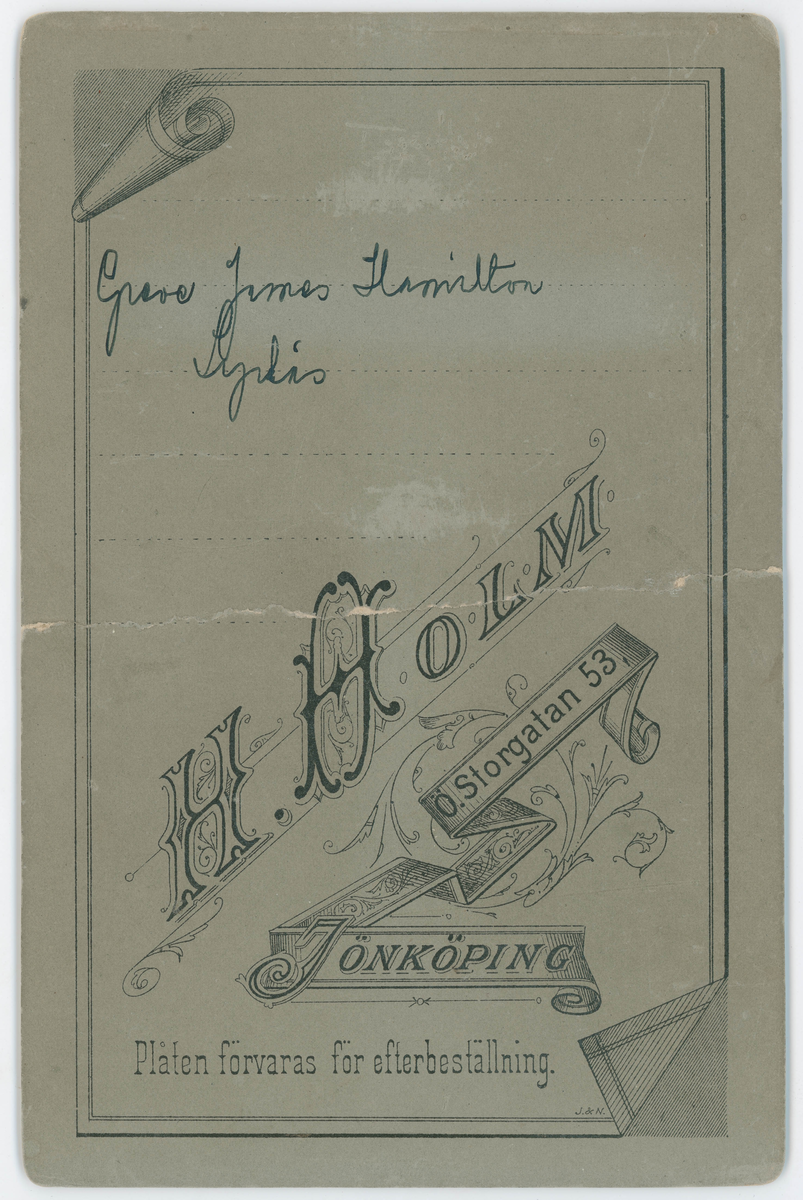 Greve James Hamilton
Lyckås
H. HOLM
Ö. Storgatan 53.
JÖNKÖPING
Plåten förvaras för efterbeställning.
J. & N.